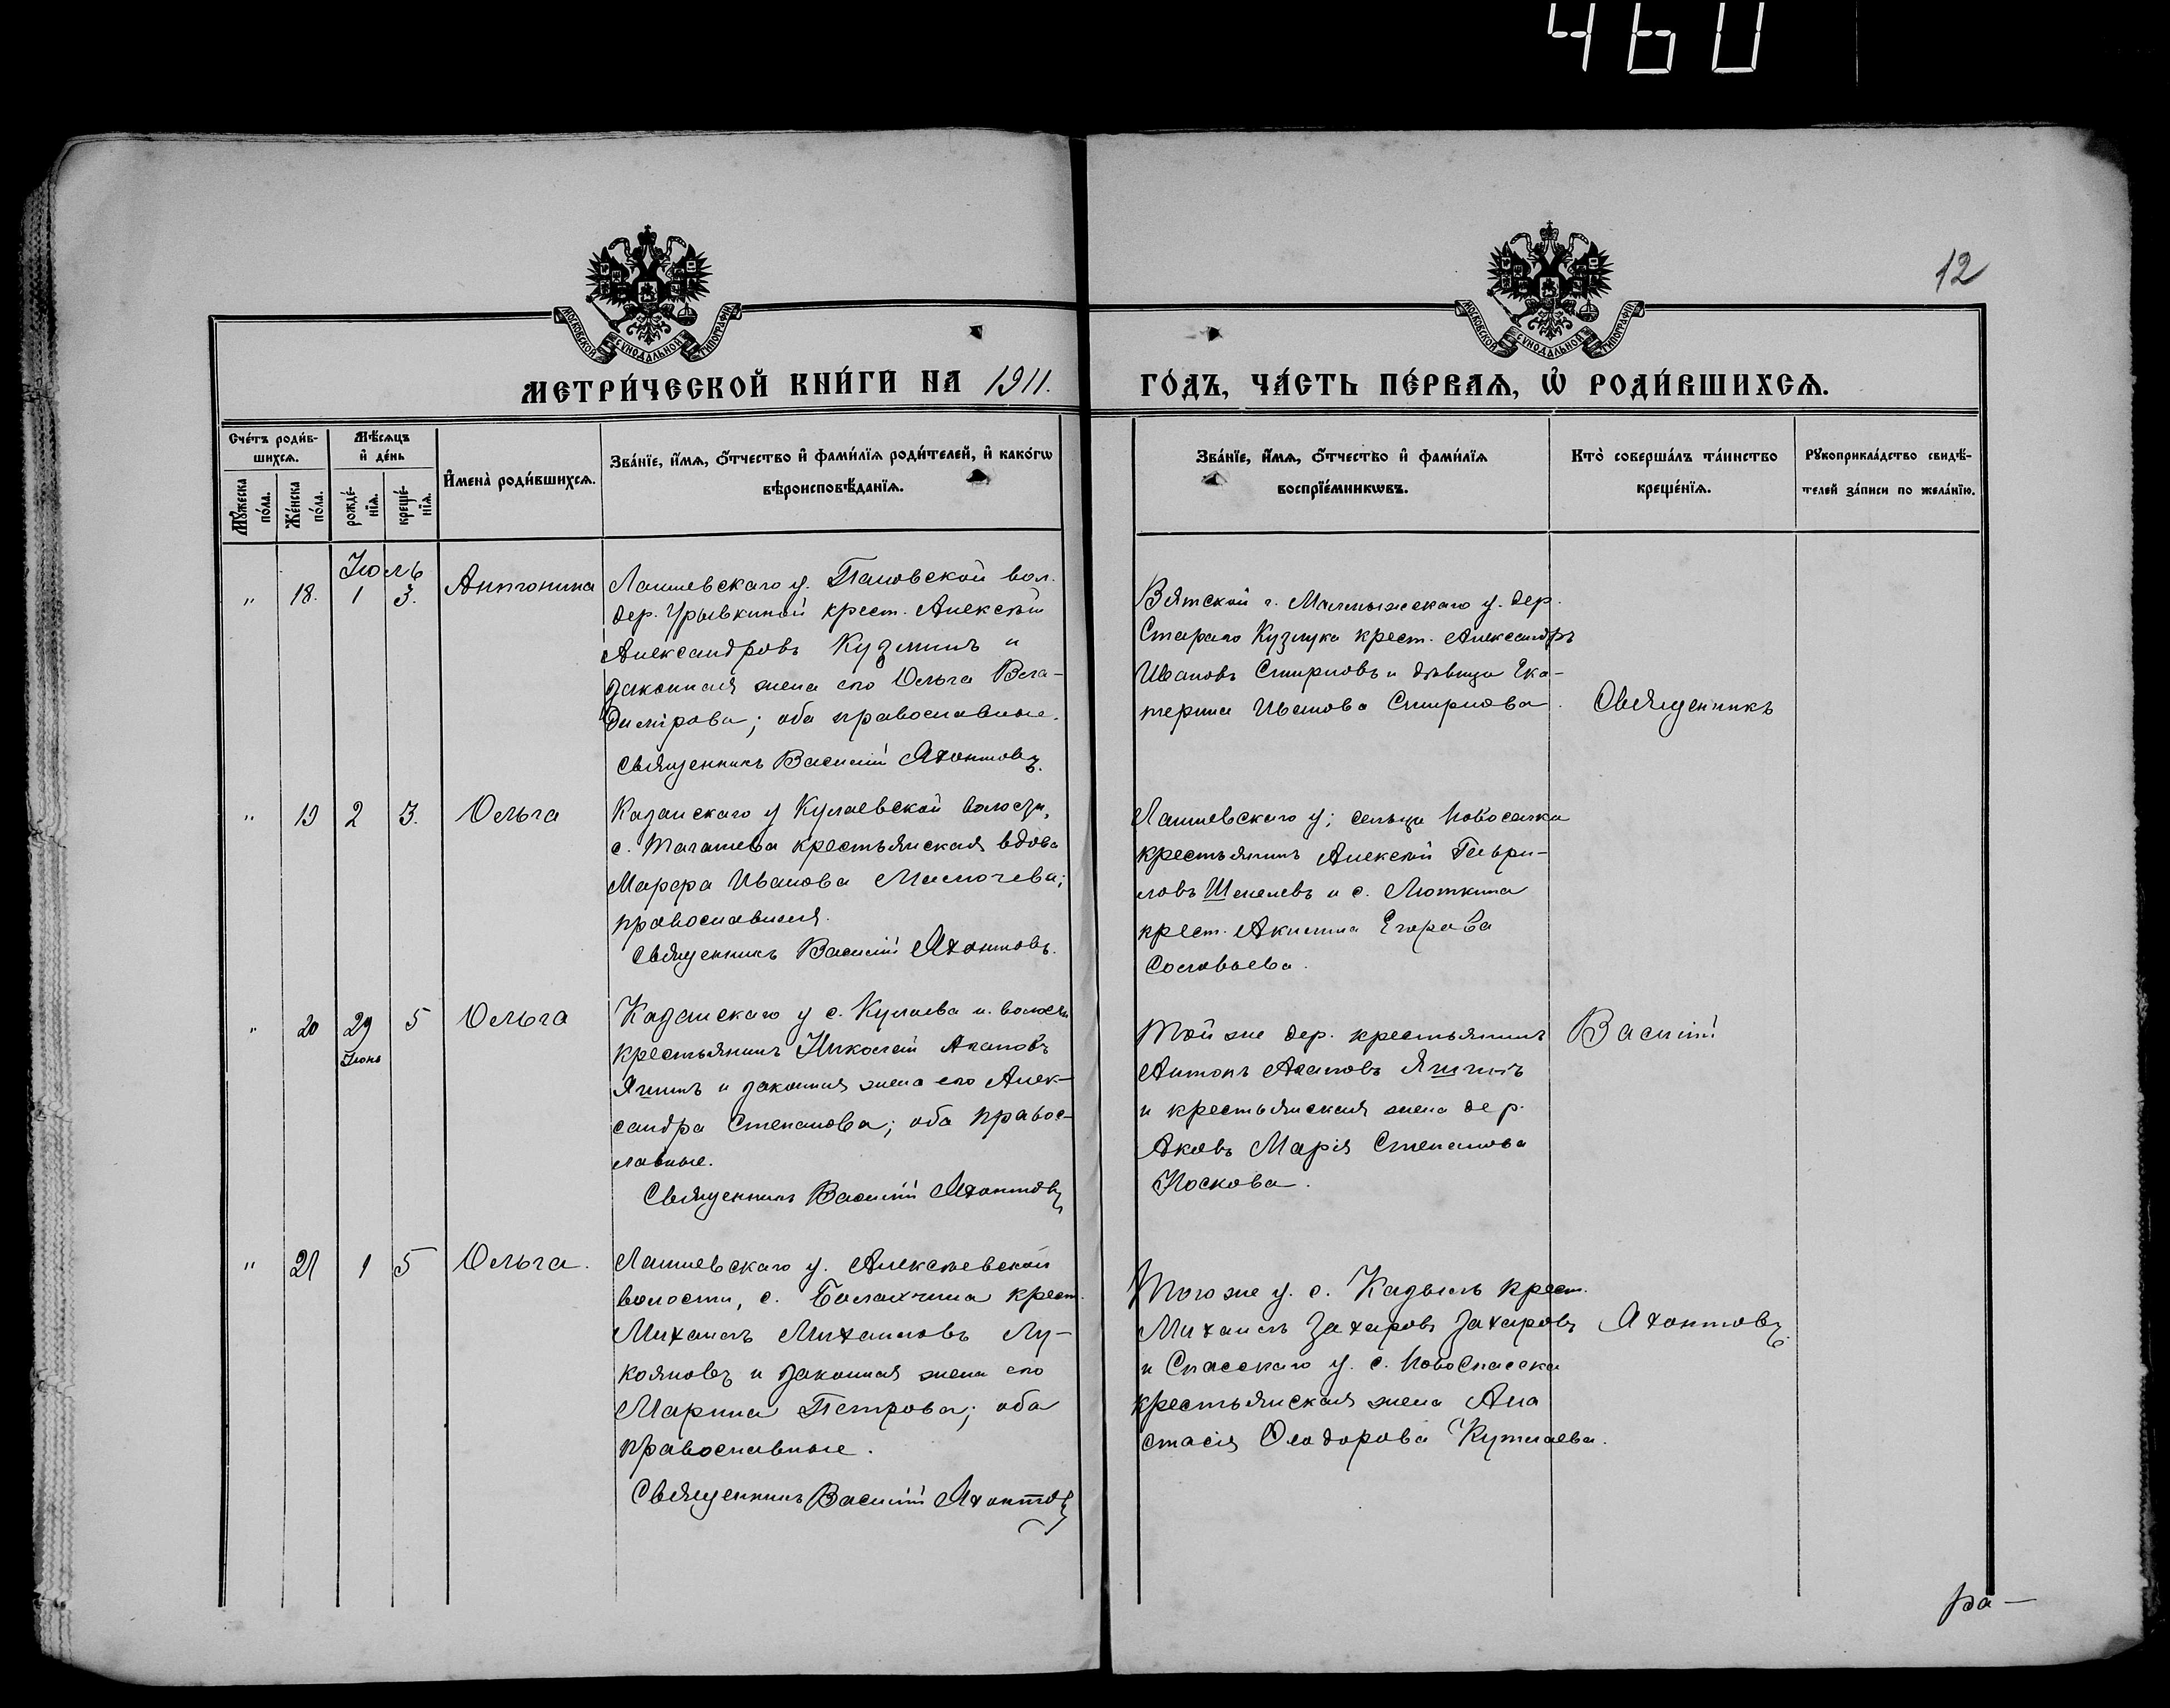 460
12
МОСКОВСКОЙ СѴНОДАЛЬНОЙ ТИПОГРАФІИ
МОСКОВСКОЙ СѴНОДАЛЬНОЙ ТИПОГРАФІИ
МЕТРИ́ЧЕСКОЙ КНИ́ГИ НА 1911.
ГО́ДЪ, ЧА́СТЬ ПЕ́РВАѦ, Ѡ҆ РОДИ́ВШИХСѦ.
Сче́тъ роди́в-
шихсѧ.
Мѣ́сѧцъ
и҆ де́нь
И҆мена̀ роди́вшихсѧ.
Зва́нїе, и҆́мѧ, ѻ҆́тчество и҆ фами́лїѧ роди́телей, и҆ како́гѡ
вѣроисповѣ́данїѧ.
Мꙋ́жеска
по́ла.
Же́нска
по́ла.
рожде́-
нїѧ.
креще́-
нїѧ.
Зва́нїе, и҆́мѧ, ѻ҆́тчество и҆ фами́лїѧ
воспрїе́мникѡвъ.
Кто̀ соверша́лъ та́инство
креще́нїѧ.
Рꙋкоприкла́дство свидѣ́-
телей за́писи по жела́нїю.
Іюль
" 18. 1 3. Антонина
Лаишевскаго у. Пановской вол.
дер. Урывкиной крест. Алексѣй
Александровъ Кузминъ и
законная жена его Ольга Вла-
димірова; оба православные.
Священникъ Василій Яхонтовъ.
Вятской г. Малмыжскаго у. дер.
Стараго Кузлука крест. Александръ
Ивановъ Смирновъ и дѣвица Ека-
терина Иванова Смирнова.
Священникъ
" 19 2 3. Ольга
Казанскаго у Кулаевской волости,
с. Тагашева крестьянская вдова
Марфа Иванова
православная.
Священникъ Василій Яхонтовъ.
Лаишевскаго у; сельца Новоселка
крестьянинъ Алексѣй Гаври-
ловъ Шепелевъ и с.
крест. Акилина Егорова
Соловьева.
" 20 29 5 Ольга
Іюнь
Казанскаго у с. Кулаева и. волости
крестьянинъ Николай Агаповъ
Яшинъ и законная жена его Алек-
сандра Степанова; оба правос-
лавные.
Священникъ Василій Яхонтовъ
Той же дер. крестьянинъ
Антонъ Агаповъ Яшинъ
и крестьянская жена дер.
Марія Степанова
Носкова.
Василій
" 21 1 5 Ольга.
Лаишевскаго у. Алексѣевской
волости, с. Балахчина крест.
Михаилъ Михаиловъ Лу-
кояновъ и законная жена его
Марина Петрова; оба
православные.
Священникъ Василій Яхонтовъ
Того же у. с. Кадыль крест.
Михаилъ Захаровъ Захаровъ
и Спасскаго у. с. Новоспасска
крестьянская жена Ана
стасія Ѳеодорова
Яхонтовъ.
ра-